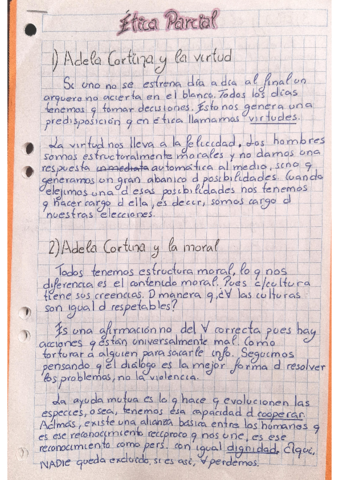 Ética Parcial
1) Adela Cortina y la virtud
Si uno no se estrena día a día al final un
arquero no acierta en el blanco. Todos los días
tenemos q tomar decisiones. Esto nos genera una
predisposición q en ética llamamos virtudes.
La virtud nos lleva a la felicidad, Los hombres
somos estructuralmente morales y no damos una
respuesta inmediata automática al medio, sino q
generamos un gran abanico d posibilidades. Cuando
elejimos una d esas posibilidades nos tenemos
q hacer cargo d ella, es decir, somos cargo d
nuestras elecciones.
2) Adela Cortina y la moral
Todos tenemos estructura moral, lo q nos
diferencia es el contenido moral. Pues c/cultura
tiene sus creencias. D manera q, ¿∀ las culturas
son igual d respetables?
Es una afirmación no del ∀ correcta pues hay
acciones q están universalmente mal. Como
torturar a alguien para sacarle info. Seguimos
pensando q el diálogo es la mejor forma d resolver
los problemas, no la violencia.
La ayuda mutua es lo q hace q evolucionen las
especies, o sea, tenemos esa capacidad d cooperar.
Además, existe una alianza básica entre los humanos q
es ese reconocimiento recíproco q nos une, es ese
reconocimiento como pers. con igual dignidad,
NADIE queda excluido, si es así, ∀ perdemos.